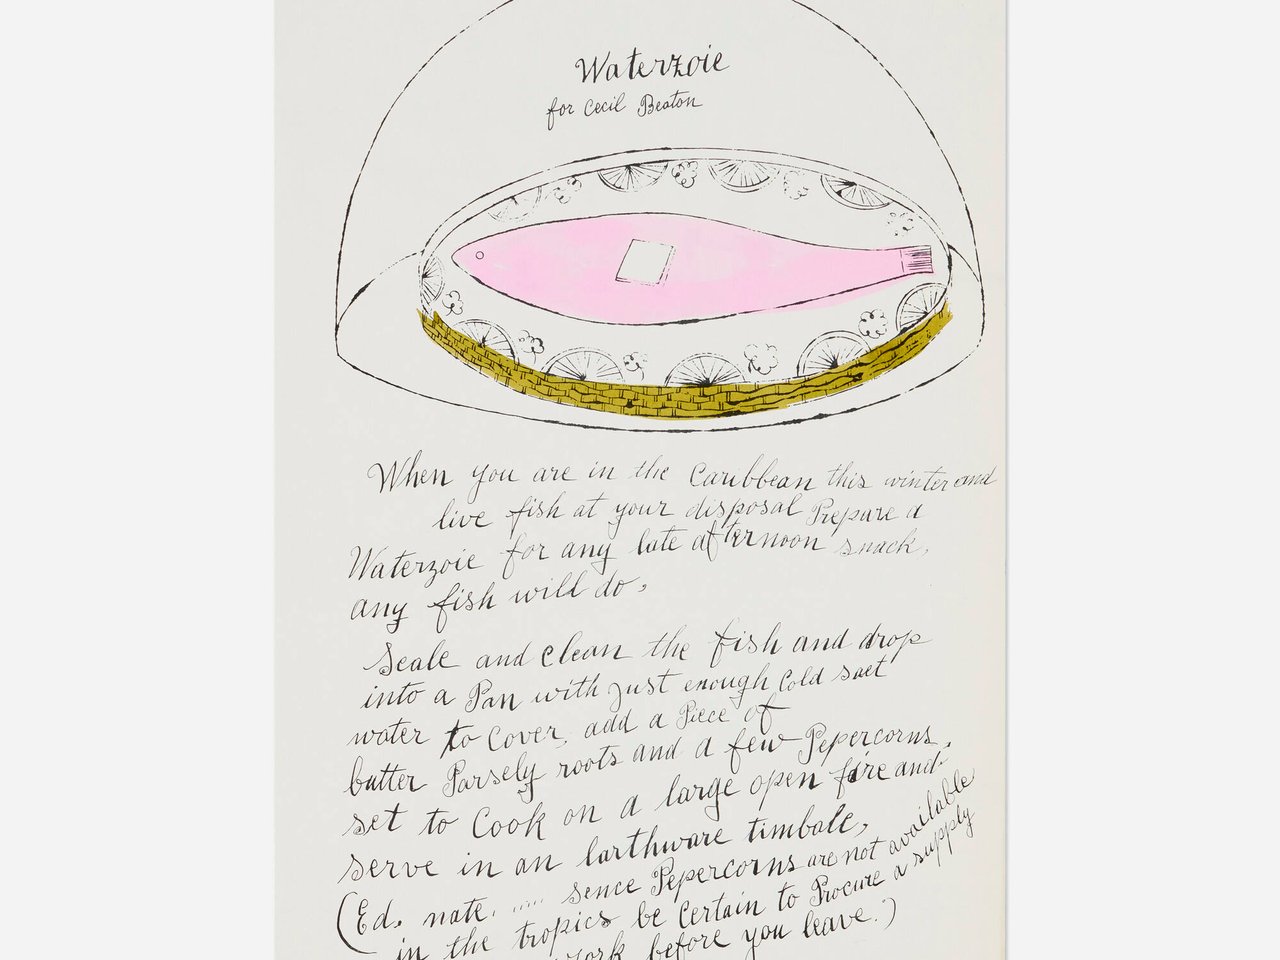 Waterzoie
for Cecil Beaton
When you are in the Caribbean this winter and
live fish at your disposal Prepare a
Waterzoie for any late afternoon snack,
any fish will do,
Scale and clean the fish and drop
into a Pan with just enough Cold salt
water to Cover, add a Piece of
butter Parsely roots and a few Pepercorns,
set to Cook on a large open fire and
serve in an Earthware timbale,
(Ed. note. ..... sence Pepercorns are not available
in the tropics be Certain to Procure a supply
before you leave.)